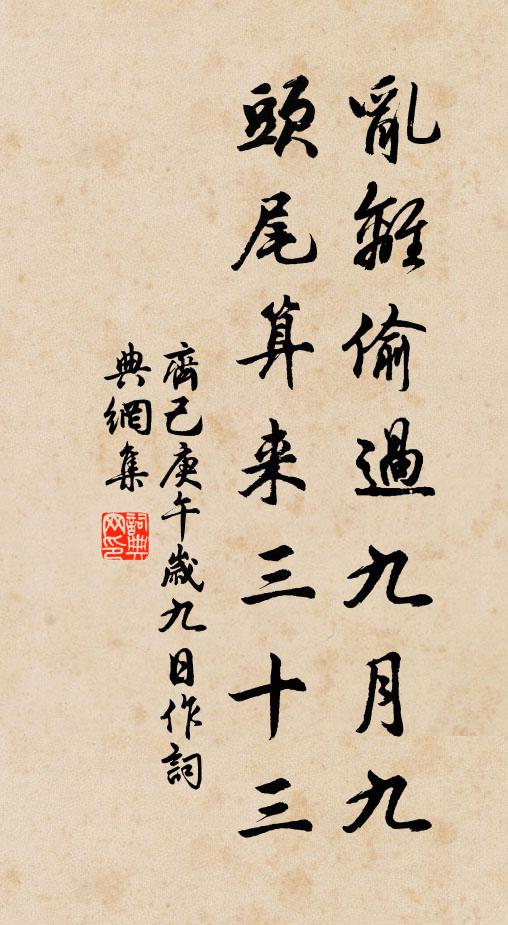 亂離偷過九月九
頭尾算来三十三
齊己庚午歲九日作詞
典網集
詞典網印